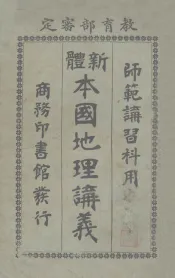 教育部審定
師範講習科用
新體
本國地理講義
商務印書館發行